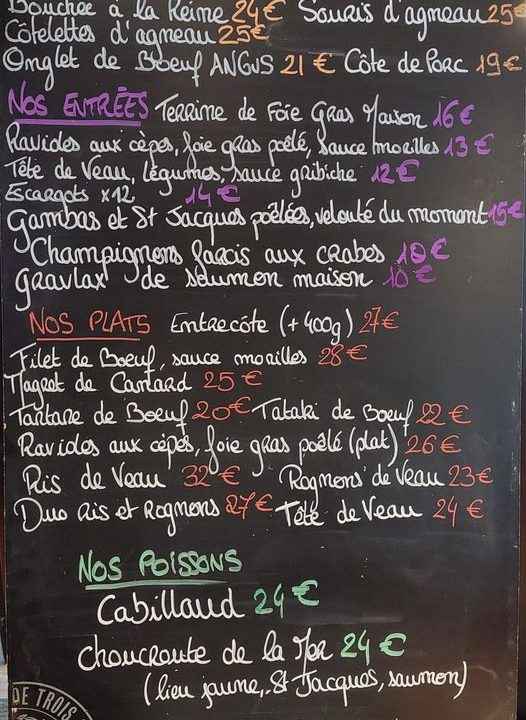 Bouchée à la Reine 24€ Souris d'agneau 25€
Côtelettes d'agneau 25€
Onglet de Boeuf ANGUS 21 € Côte de Porc 19€
NOS ENTRÉES Terrine de Foie Gras Maison 16€
Ravioles aux cèpes, foie gras poêlé, sauce morilles 13 €
Tête de Veau, légumes, sauce gribiche 12€
Escargots x12 14€
Gambas et St Jacques poêlées, velouté du moment 15€
Champignons farcis aux crabes 10€
gravlax de saumon maison 10€
NOS PLATS Entrecôte (+400g) 27€
Filet de Boeuf, sauce morilles 28€
Magret de Canard 25€
Tartare de Boeuf 20€ Tataki de Boeuf 22 €
Ravioles aux cèpes, foie gras poêlé (plat) 26€
Ris de Veau 32€ Rognons de Veau 23€
Duo Ris et Rognons 27€ Tête de Veau 24 €
NOS POISSONS
Cabillaud 24€
choucroute de la Mer 24€
(lieu jaune, St Jacques, saumon)
DE TROIS